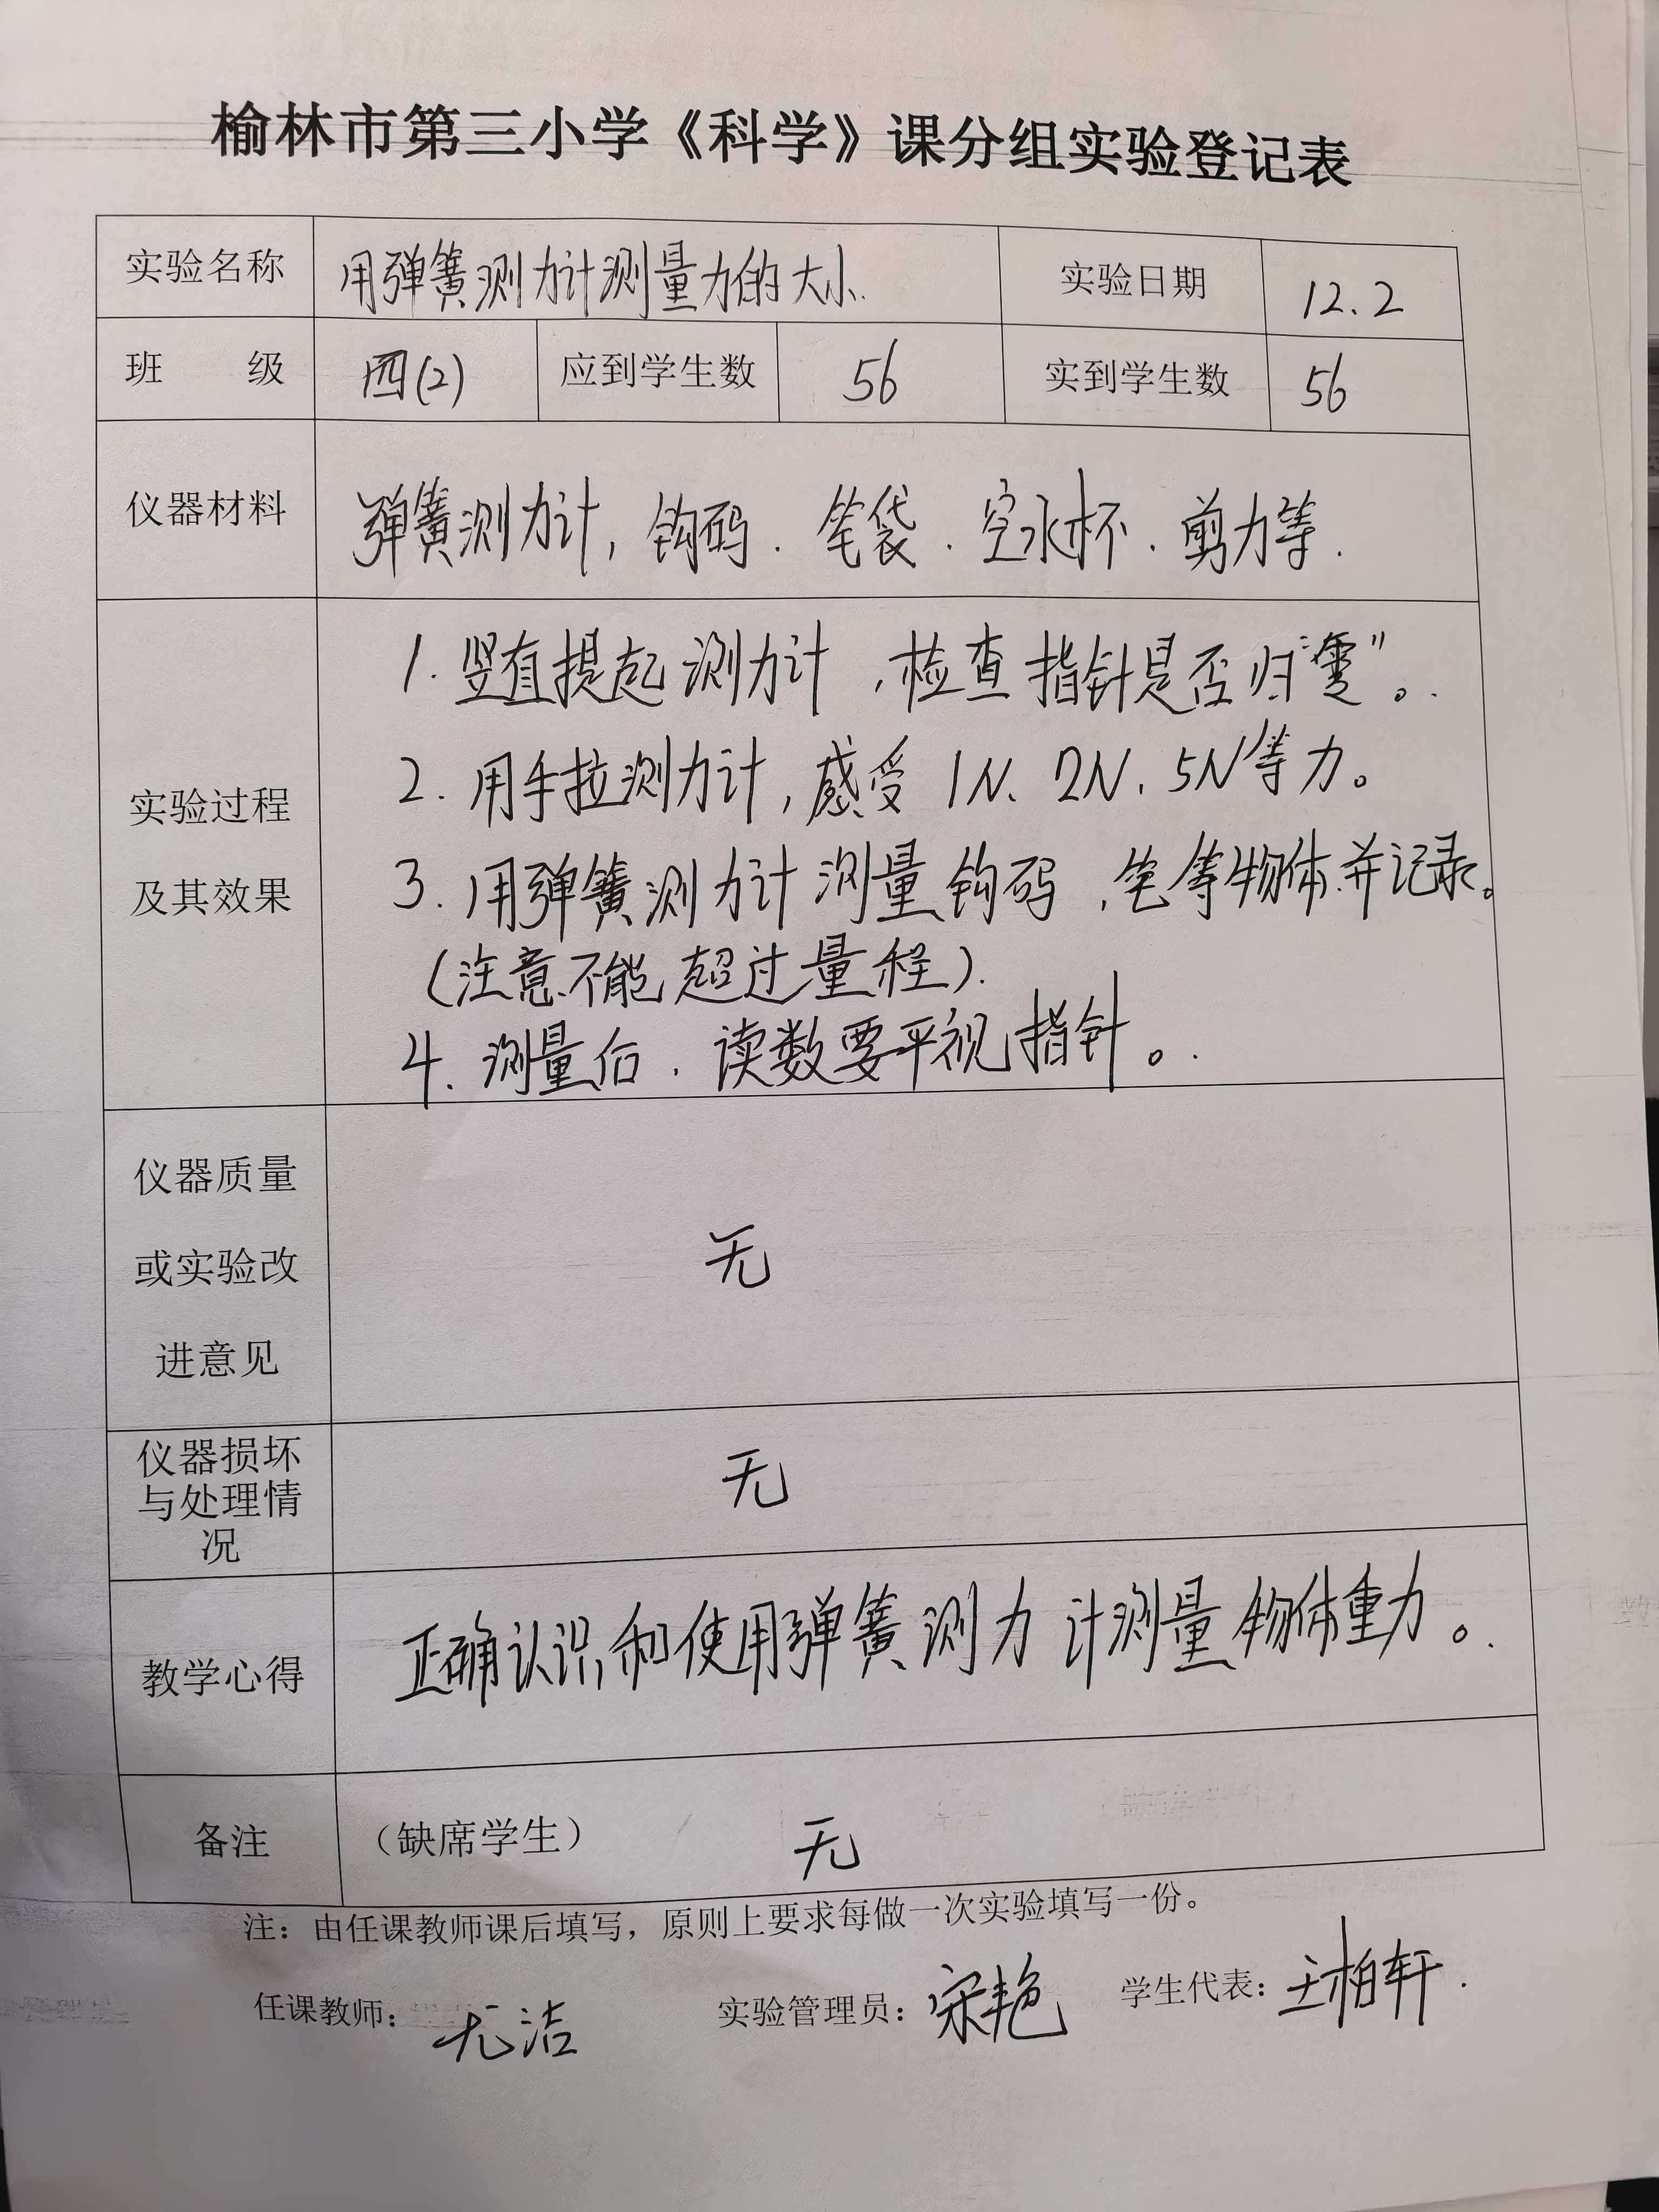 榆林市第三小学《科学》课分组实验登记表
实验名称 用弹簧测力计测量力的大小. 实验日期 12.2
班 级 四(2) 应到学生数 56 实到学生数 56
仪器材料 弹簧测力计, 钩码. 笔袋. 空水杯. 剪力等.
实验过程
及其效果
1. 竖直提起测力计,检查指针是否归“零”。
2. 用手拉测力计,感受1N、2N、5N等力。
3. 用弹簧测力计测量钩码,笔等物体.并记录。
(注意不能超过量程).
4. 测量后. 读数要平视指针。
仪器质量
或实验改
进意见
无
仪器损坏
与处理情
况
无
教学心得 正确认识和使用弹簧测力计测量物体重力。
备注 (缺席学生) 无
注:由任课教师课后填写,原则上要求每做一次实验填写一份。
任课教师: 尤洁 实验管理员: 宋艳 学生代表: 王柏轩.